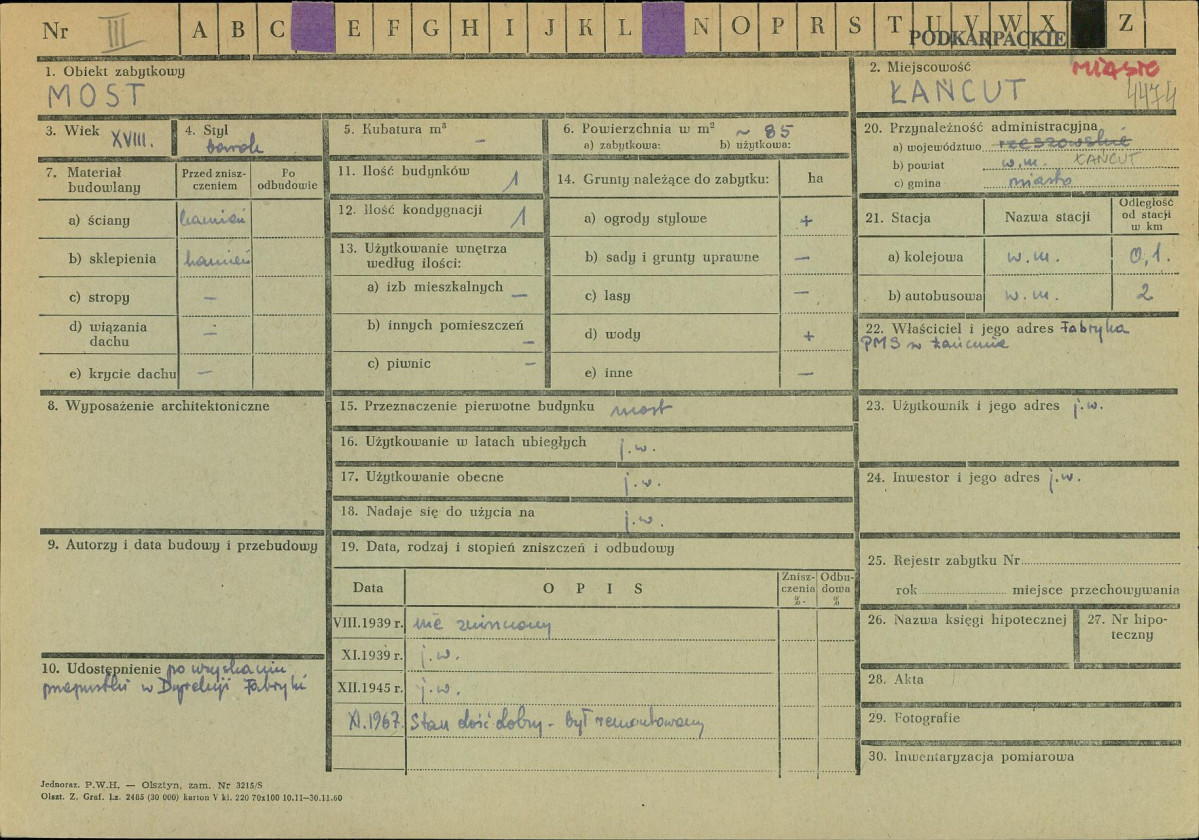 Nr III A B C E F G H I J K L N O P R S T U V W X Z
PODKARPACKIE
1. Obiekt zabytkowy
MOST
2. Miejscowość MIASTO
ŁAŃCUT 4474
3. Wiek XVIII.
4. Styl barok
5. Kubatura m³ —
6. Powierzchnia w m² ~ 85
a) zabytkowa: b) użytkowa:
7. Materiał budowlany
Przed zniszczeniem
Po odbudowie
a) ściany kamień
b) sklepienia kamień
c) stropy —
d) wiązania dachu —
e) krycie dachu —
8. Wyposażenie architektoniczne
9. Autorzy i data budowy i przebudowy
10. Udostępnienie po uzyskaniu
przepustki w Dyrekcji Fabryki
11. Ilość budynków 1
12. Ilość kondygnacji 1
13. Użytkowanie wnętrza
według ilości:
a) izb mieszkalnych —
b) innych pomieszczeń —
c) piwnic —
14. Grunty należące do zabytku: ha
a) ogrody stylowe +
b) sady i grunty uprawne —
c) lasy —
d) wody +
e) inne —
15. Przeznaczenie pierwotne budynku most
16. Użytkowanie w latach ubiegłych j.w.
17. Użytkowanie obecne j.w.
18. Nadaje się do użycia na j.w.
19. Data, rodzaj i stopień zniszczeń i odbudowy
Data OPIS Zniszczenia % Odbudowa %
VIII.1939 r. nie zniszczony
XI.1939 r. j.w.
XII.1945 r. j.w.
XI.1967. Stan dość dobry - był remontowany
20. Przynależność administracyjna
a) województwo rzeszowskie
b) powiat w.m. ŁAŃCUT
c) gmina miasto
21. Stacja Nazwa stacji Odległość od stacji w km
a) kolejowa w.m. 0,1.
b) autobusowa w.m. 2
22. Właściciel i jego adres Fabryka
PMS w Łańcucie
23. Użytkownik i jego adres j.w.
24. Inwestor i jego adres j.w.
25. Rejestr zabytku Nr
rok miejsce przechowywania
26. Nazwa księgi hipotecznej
27. Nr hipoteczny
28. Akta
29. Fotografie
30. Inwentaryzacja pomiarowa
Jednoraz. P.W.H. — Olsztyn, zam. Nr 3215/S
Olszt. Z. Graf. Lz. 2485 (30 000) karton V kl. 220 70x100 10.11—30.11.60